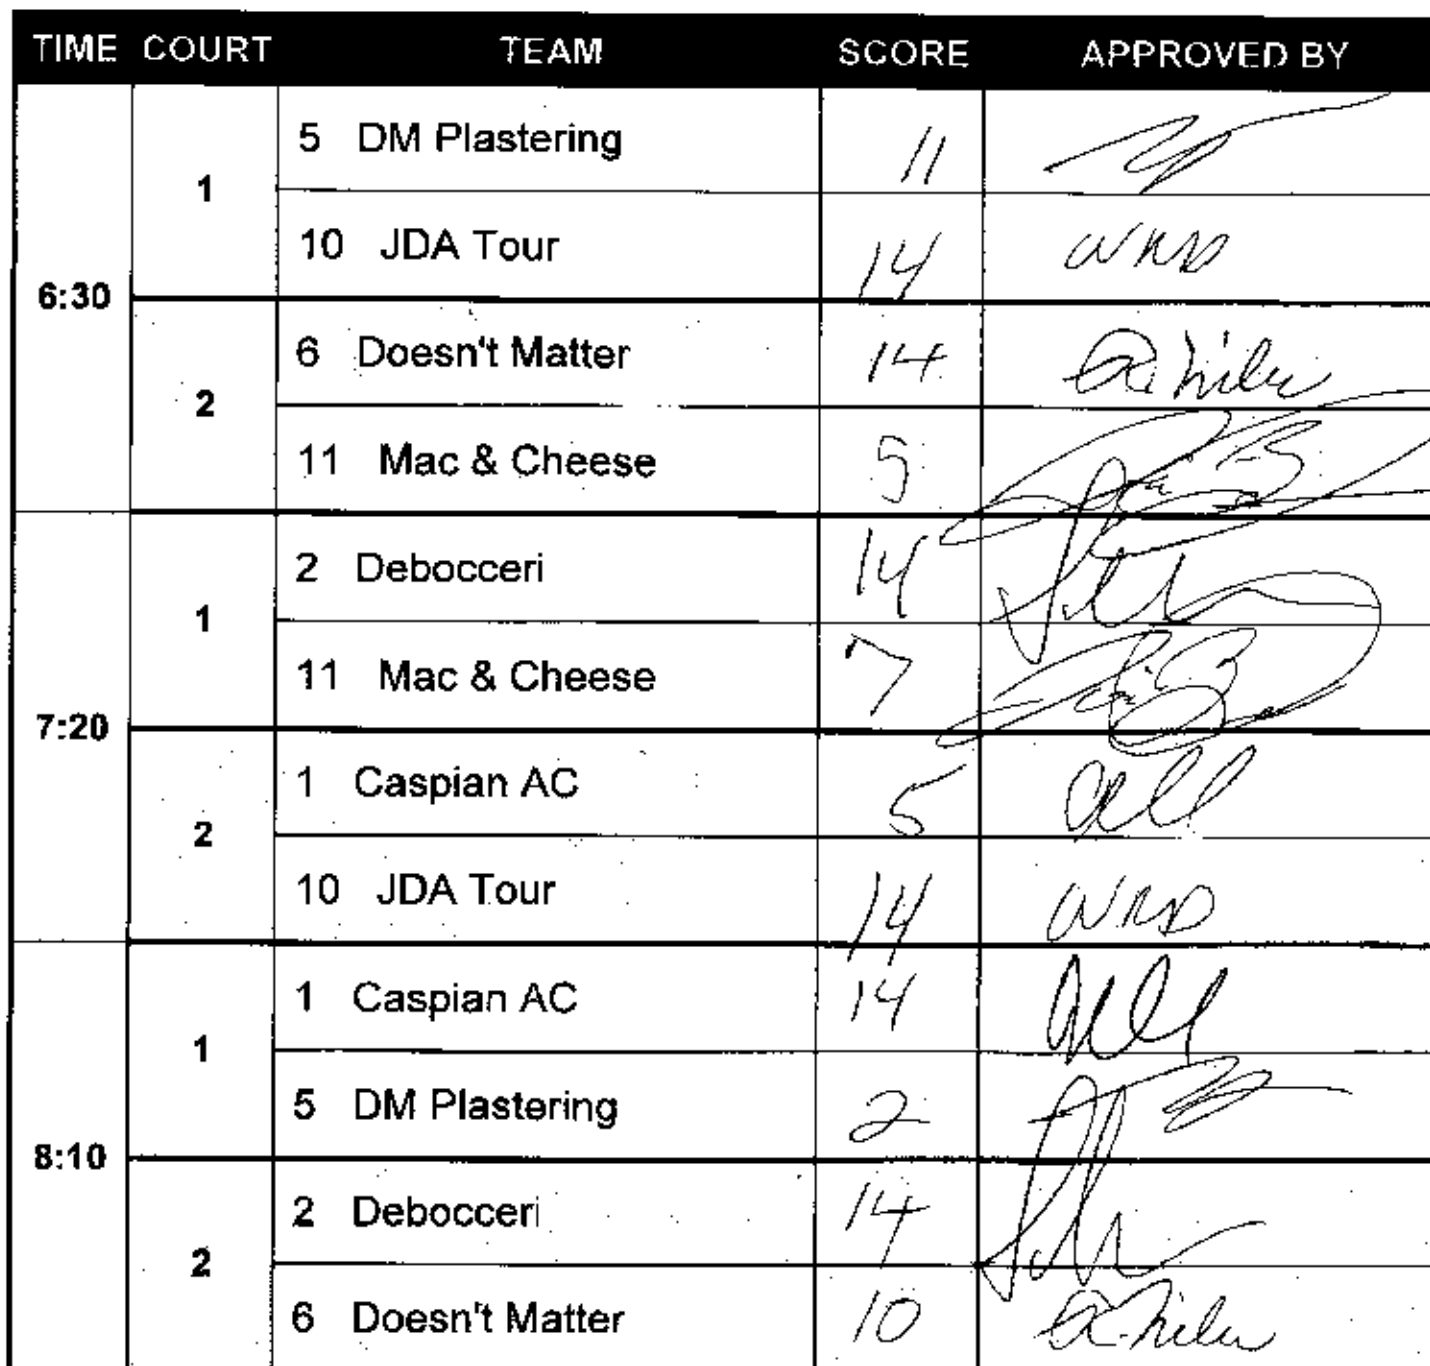 TIME COURT TEAM SCORE APPROVED BY
6:30
1
5 DM Plastering 11
10 JDA Tour 14 WRD
2
6 Doesn't Matter 14
11 Mac & Cheese 5
7:20
1
2 Debocceri 14
11 Mac & Cheese 7
2
1 Caspian AC 5
10 JDA Tour 14 WRD
8:10
1
1 Caspian AC 14
5 DM Plastering 2
2
2 Debocceri 14
6 Doesn't Matter 10